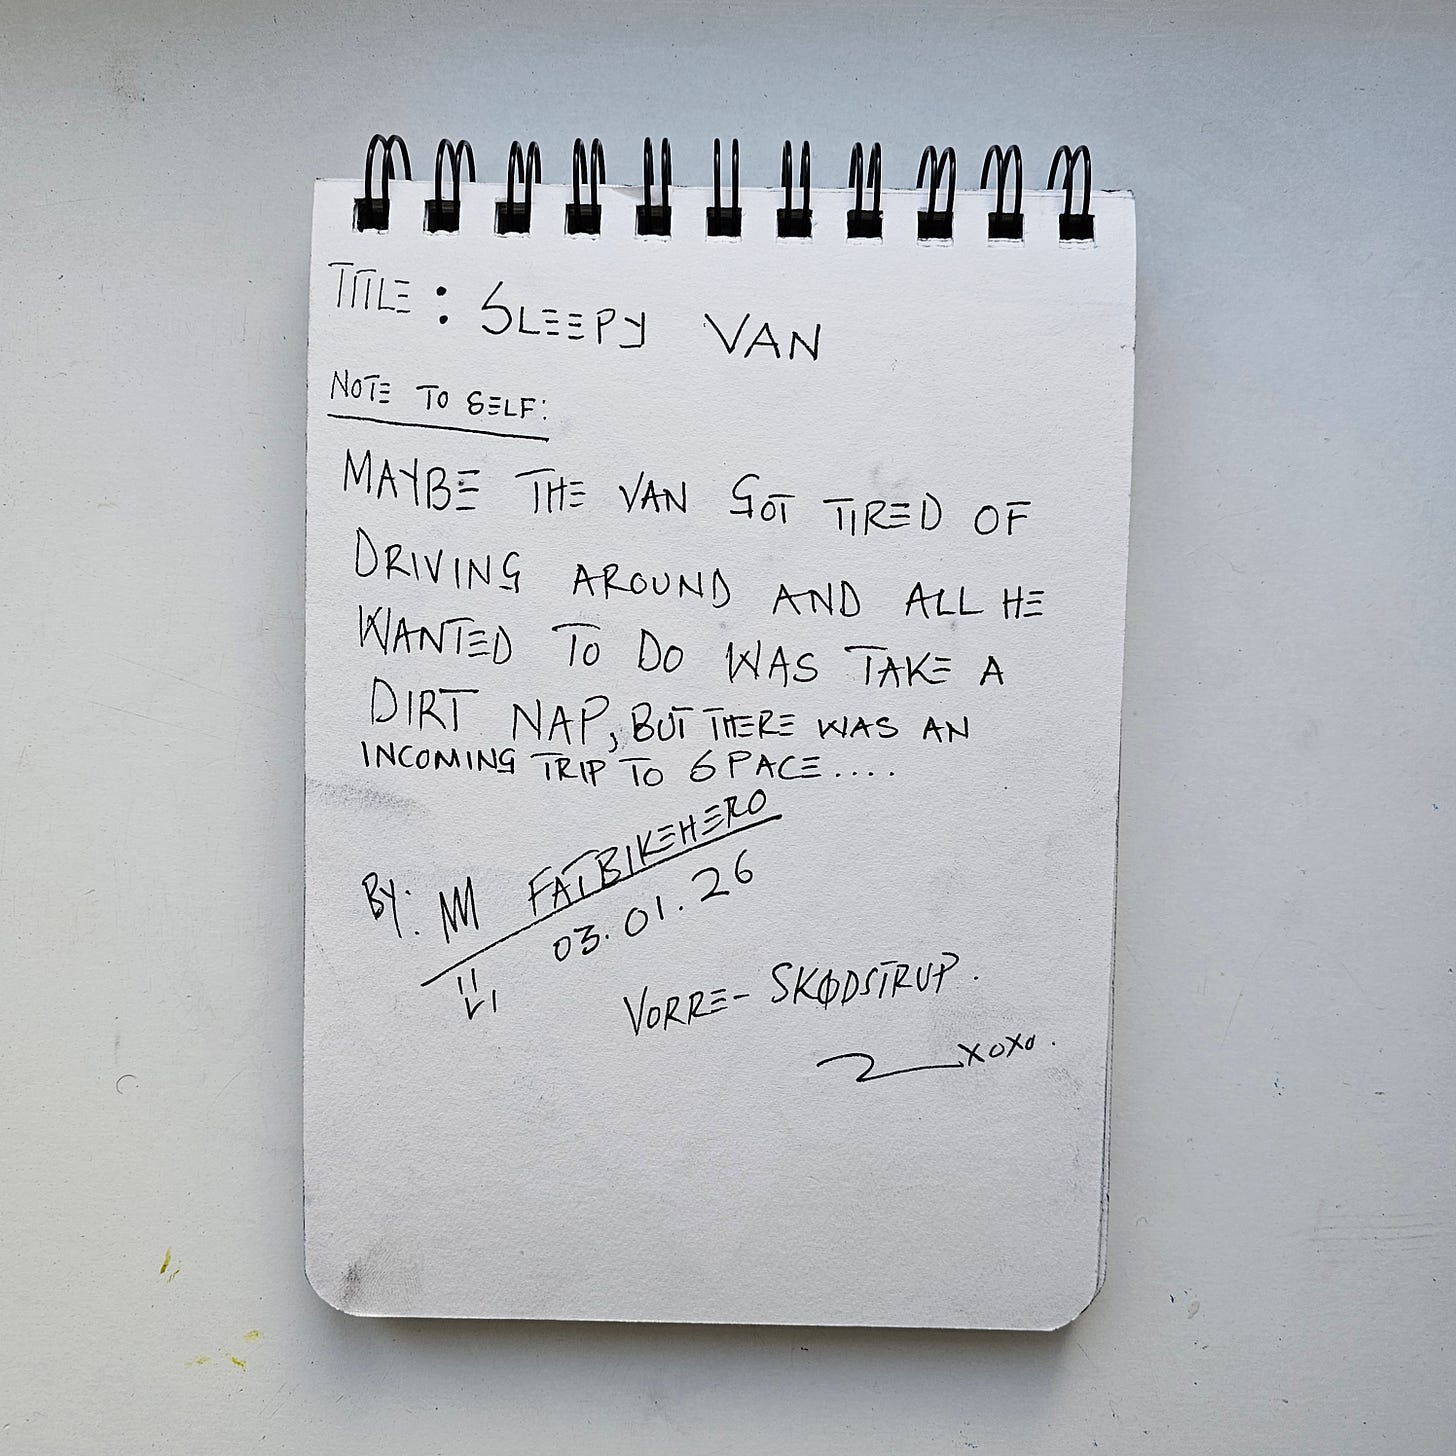 TITLE: SLEEPY VAN
NOTE TO SELF:
MAYBE THE VAN GOT TIRED OF
DRIVING AROUND AND ALL HE
WANTED TO DO WAS TAKE A
DIRT NAP, BUT THERE WAS AN
INCOMING TRIP TO SPACE....
BY: FATBIKEHERO
03.01.26
VORRE-SKØDSTRUP.
XOXO.